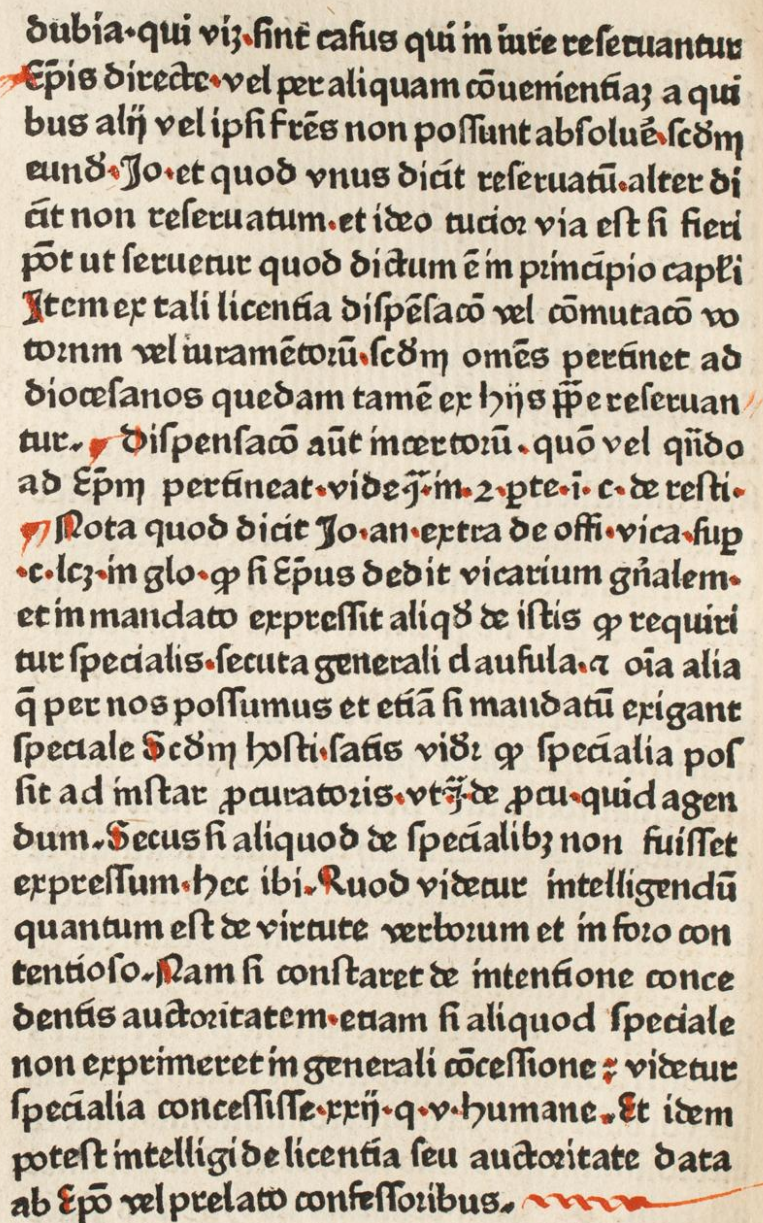 dubia.qui viꝫ.ſint caſus qui in iure reſeruantur
Ep̄is directe.vel per aliquam cōuenientiaꝫ a qui
bus alij vel ipſi fr̄es non poſſunt abſoluē.ſcd̄m
eund̄.Jo.et quod vnus dicit reſeruatū.alter di
cit non reſeruatum.et ideo tucior via eſt ſi fieri
pōt ut ſeruetur quod dictum ē in principio capl̄i
Item ex tali licentia diſpēſacō vel cōmutacō vo
tornm vel iuramētorū.ſcd̄m omēs pertinet ad
dioceſanos quedam tamē ex hijs ꝓp̄e reſeruan
tur. Diſpenſacō aūt incertorū.quō vel qn̄do
ad Ep̄m pertineat.vide j̄.in.2.ꝑte.i.c.de reſti.
Nota quod dicit Jo.an.extra de offi.vica.ſuꝑ
.c.lcꝫ.in glo.ꝙ ſi Ep̄us dedit vicarium gn̄alem.
et in mandato expreſſit aliqd̄ de iſtis ꝙ requiri
tur ſpecialis.ſecuta generali clauſula.⁊ oīa alia
q̄ per nos poſſumus et etiā ſi mandatū exigant
ſpeciale Scd̄m hoſti.ſatis vid̄r ꝙ ſpecialia poſ
ſit ad inſtar ꝓcuratoris.vt j̄ de ꝓcu.quid agen
dum.Secus ſi aliquod de ſpecialibꝫ non fuiſſet
expreſſum.hec ibi.Quod videtur intelligendū
quantum eſt de virtute verborum et in foro con
tentioſo.Nam ſi conſtaret de intentione conce
dentis auctoritatem.etiam ſi aliquod ſpeciale
non exprimeret in generali cōceſſione : videtur
ſpecialia conceſſiſſe.xxij.q.v.humane.Et idem
poteſt intelligi de licentia ſeu auctoritate data
ab Ep̄o vel prelato confeſſoribus.